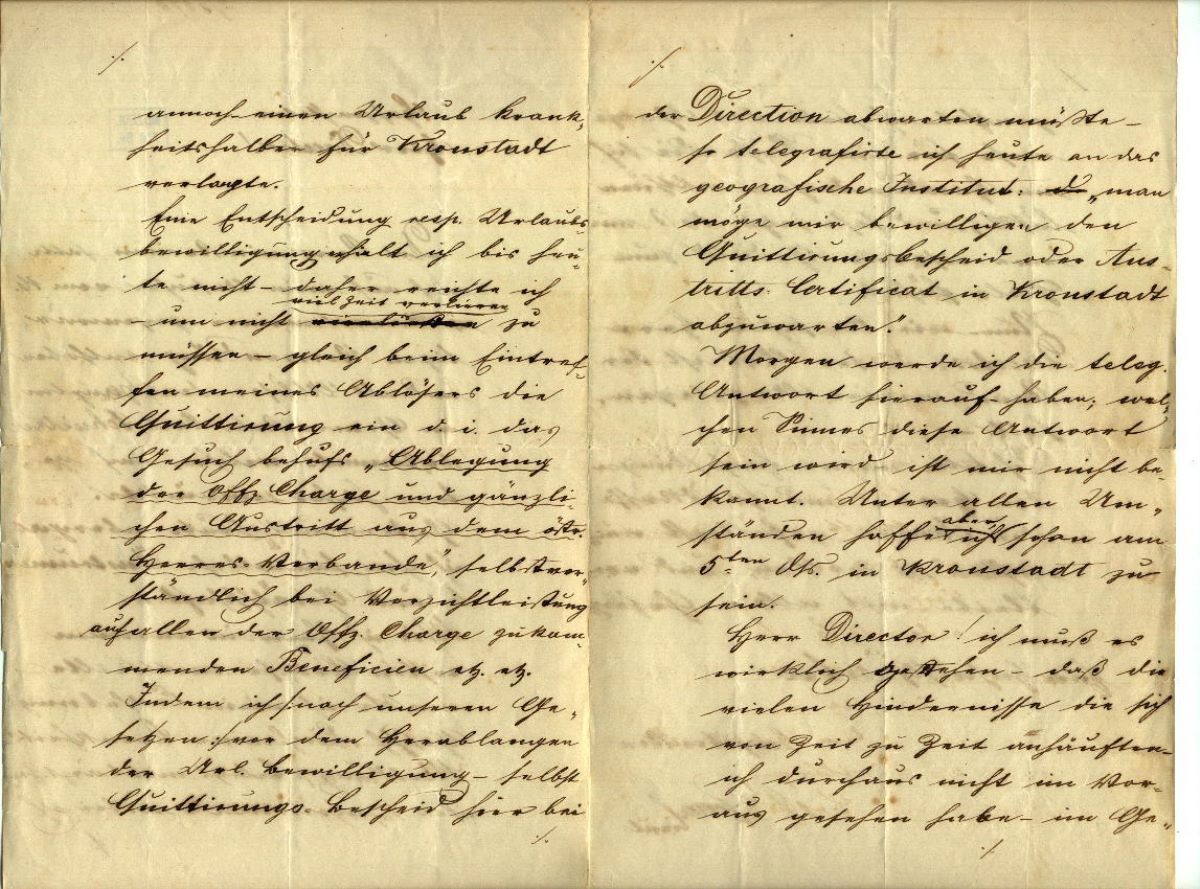 ./.
annoch einen Urlaub krank-
heitshalber für Kronstadt
verlangte.
Eine Entscheidung resp. Urlaubs-
bewilligung erhalt ich bis heu-
te nicht – daher reichte ich
viel Zeit verlieren
– um nicht zu
müssen – gleich beim Eintref-
fen meines Ablösers die
Quittirung ein d. i. das
Gesuch behufs „Ablegung
der Offz. Charge und gänzli-
chen Austritt aus dem östr.
Heeres-Verbande", selbstver-
ständlich bei Verzichtleistung
auf allen der Offz. Charge zukom-
menden Beneficien etz. etz.
Indem ich /: nach unseren Ge-
setzen :/ vor dem Herablangen
der Url. Bewilligung – selbst
Quittirungs-Bescheid hier bei
./.
./.
der Direction abwarten müßte –
so telegrafirte ich heute an das
geografische Institut: d „man
möge mir bewilligen den
Quittirungsbescheid oder Aus-
tritts-Certificat in Kronstadt
abzuwarten."
Morgen werde ich die teleg.
Antwort hierauf haben; wel-
chen Sinnes diese Antwort
sein wird ist mir nicht be-
kannt. Unter allen Um-
aber
ständen hoffe ich schon am
5ten Dfs. in Kronstadt zu
sein.
Herr Director! ich muß es
wirklich gestehen – daß die
vielen Hindernisse die sich
von Zeit zu Zeit anhäuften –
ich durchaus nicht im Vor-
aus gesehen habe – im Ge-
./.